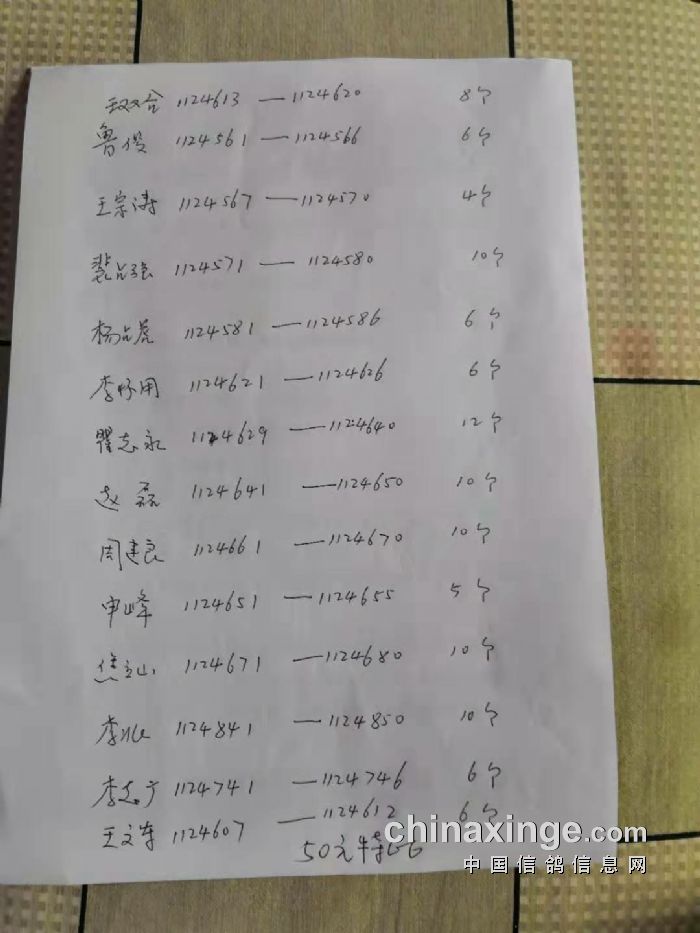 1124613 — 1124620 8个
鲁俊 1124561 — 1124566 6个
王宗涛 1124567 — 1124570 4个
裴占强 1124571 — 1124580 10个
杨占虎 1124581 — 1124586 6个
李怀用 1124621 — 1124626 6个
瞿志永 1124629 — 1124640 12个
赵磊 1124641 — 1124650 10个
周建良 1124661 — 1124670 10个
申峰 1124651 — 1124655 5个
焦立山 1124671 — 1124680 10个
李 1124841 — 1124850 10个
李志广 1124741 — 1124746 6个
王文 1124607 — 1124612 6个
50元特
chinaxinge.com
中国信鸽信息网